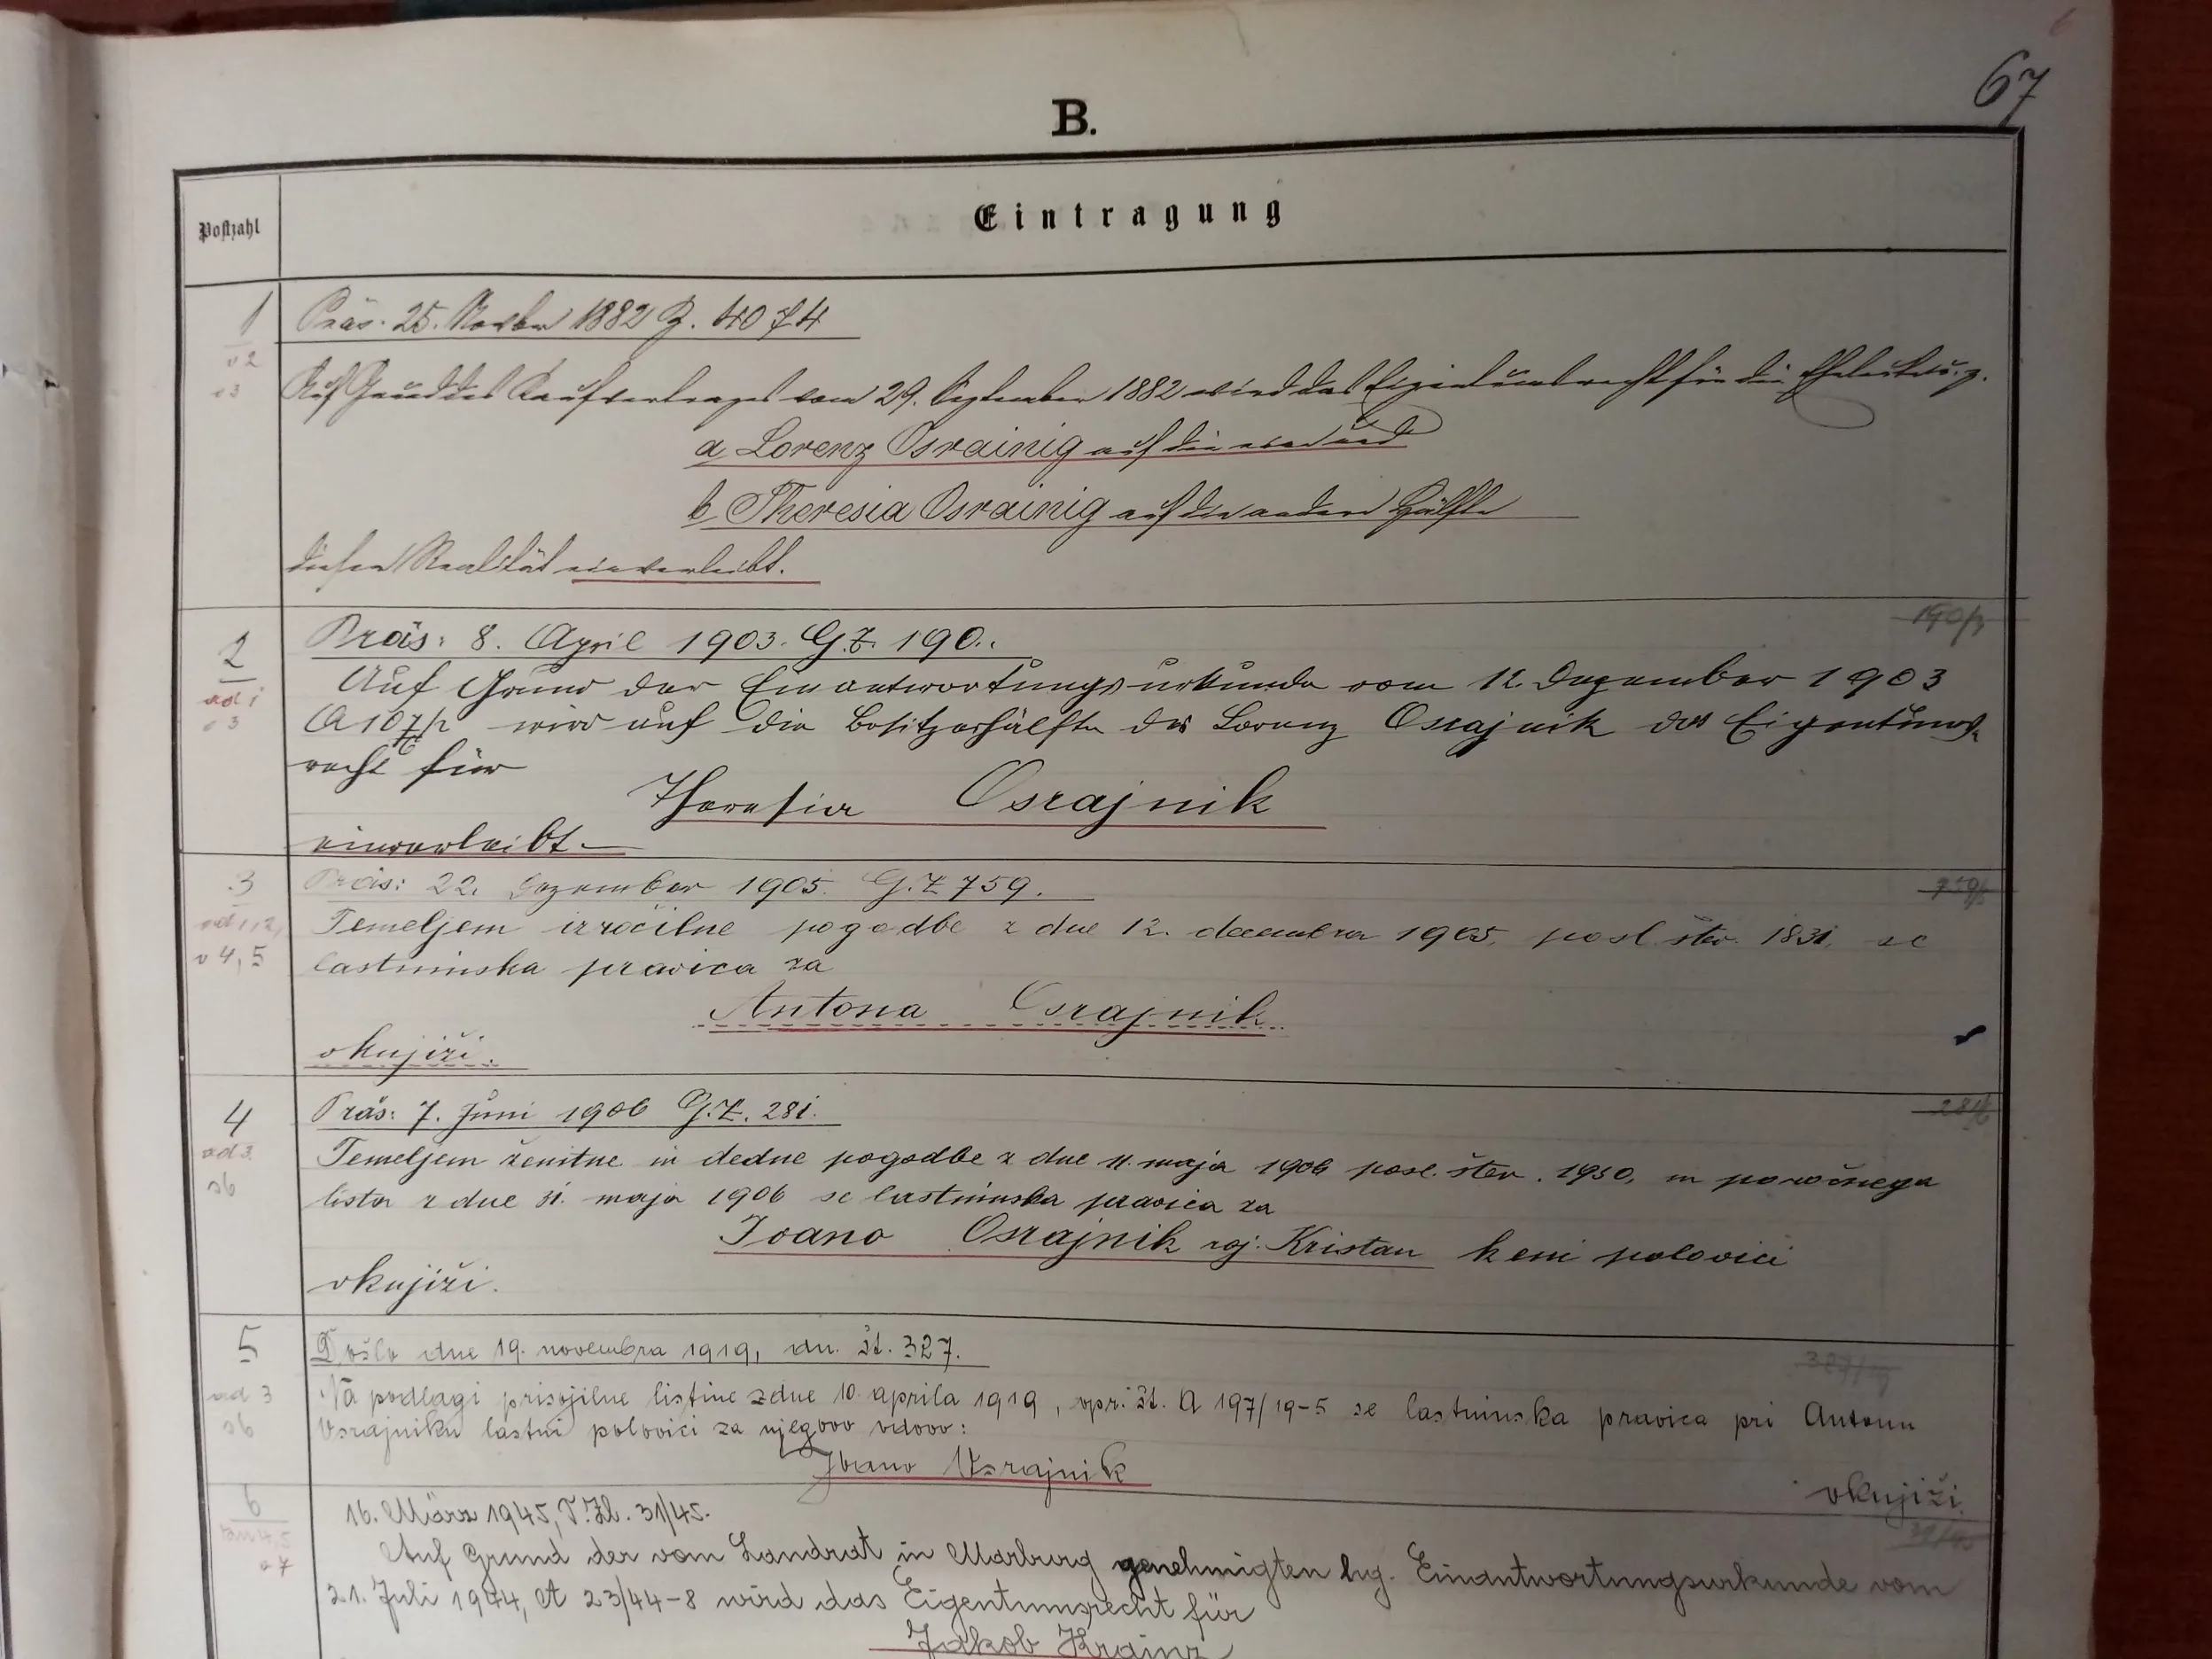 67
B.
Postzahl
Eintragung
1
Präs. 25. November 1882 Z. 4074
v 2
v 3
Auf Grund des Kaufvertrages vom 29. September 1882 wird das Eigenthumsrecht für die Eheleute u. z.
a, Lorenz Osrainig auf die eine und
b, Theresia Osrainig auf die andere Hälfte
dieser Realität einverleibt.
190/3
2
Präs: 8. April 1903. G.Z. 190.
ad 1
v 3
Auf Grund der Einantwortungsurkunde vom 12. Dezember 1903
wird auf die Besitzeshälfte des Lorenz Osrajnik das Eigentums-
recht für
Theresia Osrajnik
einverleibt.
759/5
3
Präs: 22. Dezember 1905. G.Z 759.
ad 1, 2,
v 4, 5
Temeljem izročilne pogodbe z dne 12. decembra 1905, posl. štev. 1831, se
lastninska pravica za
Antona Osrajnik
vknjiži.
281/6
4
Präs: 7. Juni 1906 G.Z. 281.
ad 3
Temeljem ženitne in dedne pogodbe z dne 11. maja 1906 posl. štev. 1950, in poročnega
lista z dne 31. maja 1906 se lastninska pravica za
Ivano Osrajnik roj. Kristan k eni polovici
vknjiži.
5
Došlo dne 19. novembra 1919, dn. št. 327.
327/19
ad 3
Na podlagi prisojilne listine z dne 10. aprila 1919, opr. št. A 197/19-5 se lastninska pravica pri Antonu
Vsrajniku lastni polovici za njegovo vdovo:
Ivano Vsrajnik
vknjiži.
31/45
6
16. März 1945, T.Zl. 31/45.
v 7
Auf Grund der vom Landrat in Marburg genehmigten hg. Einantwortungsurkunde vom
21. Juli 1944, A 23/44-8 wird das Eigentumsrecht für
Jakob Krainz